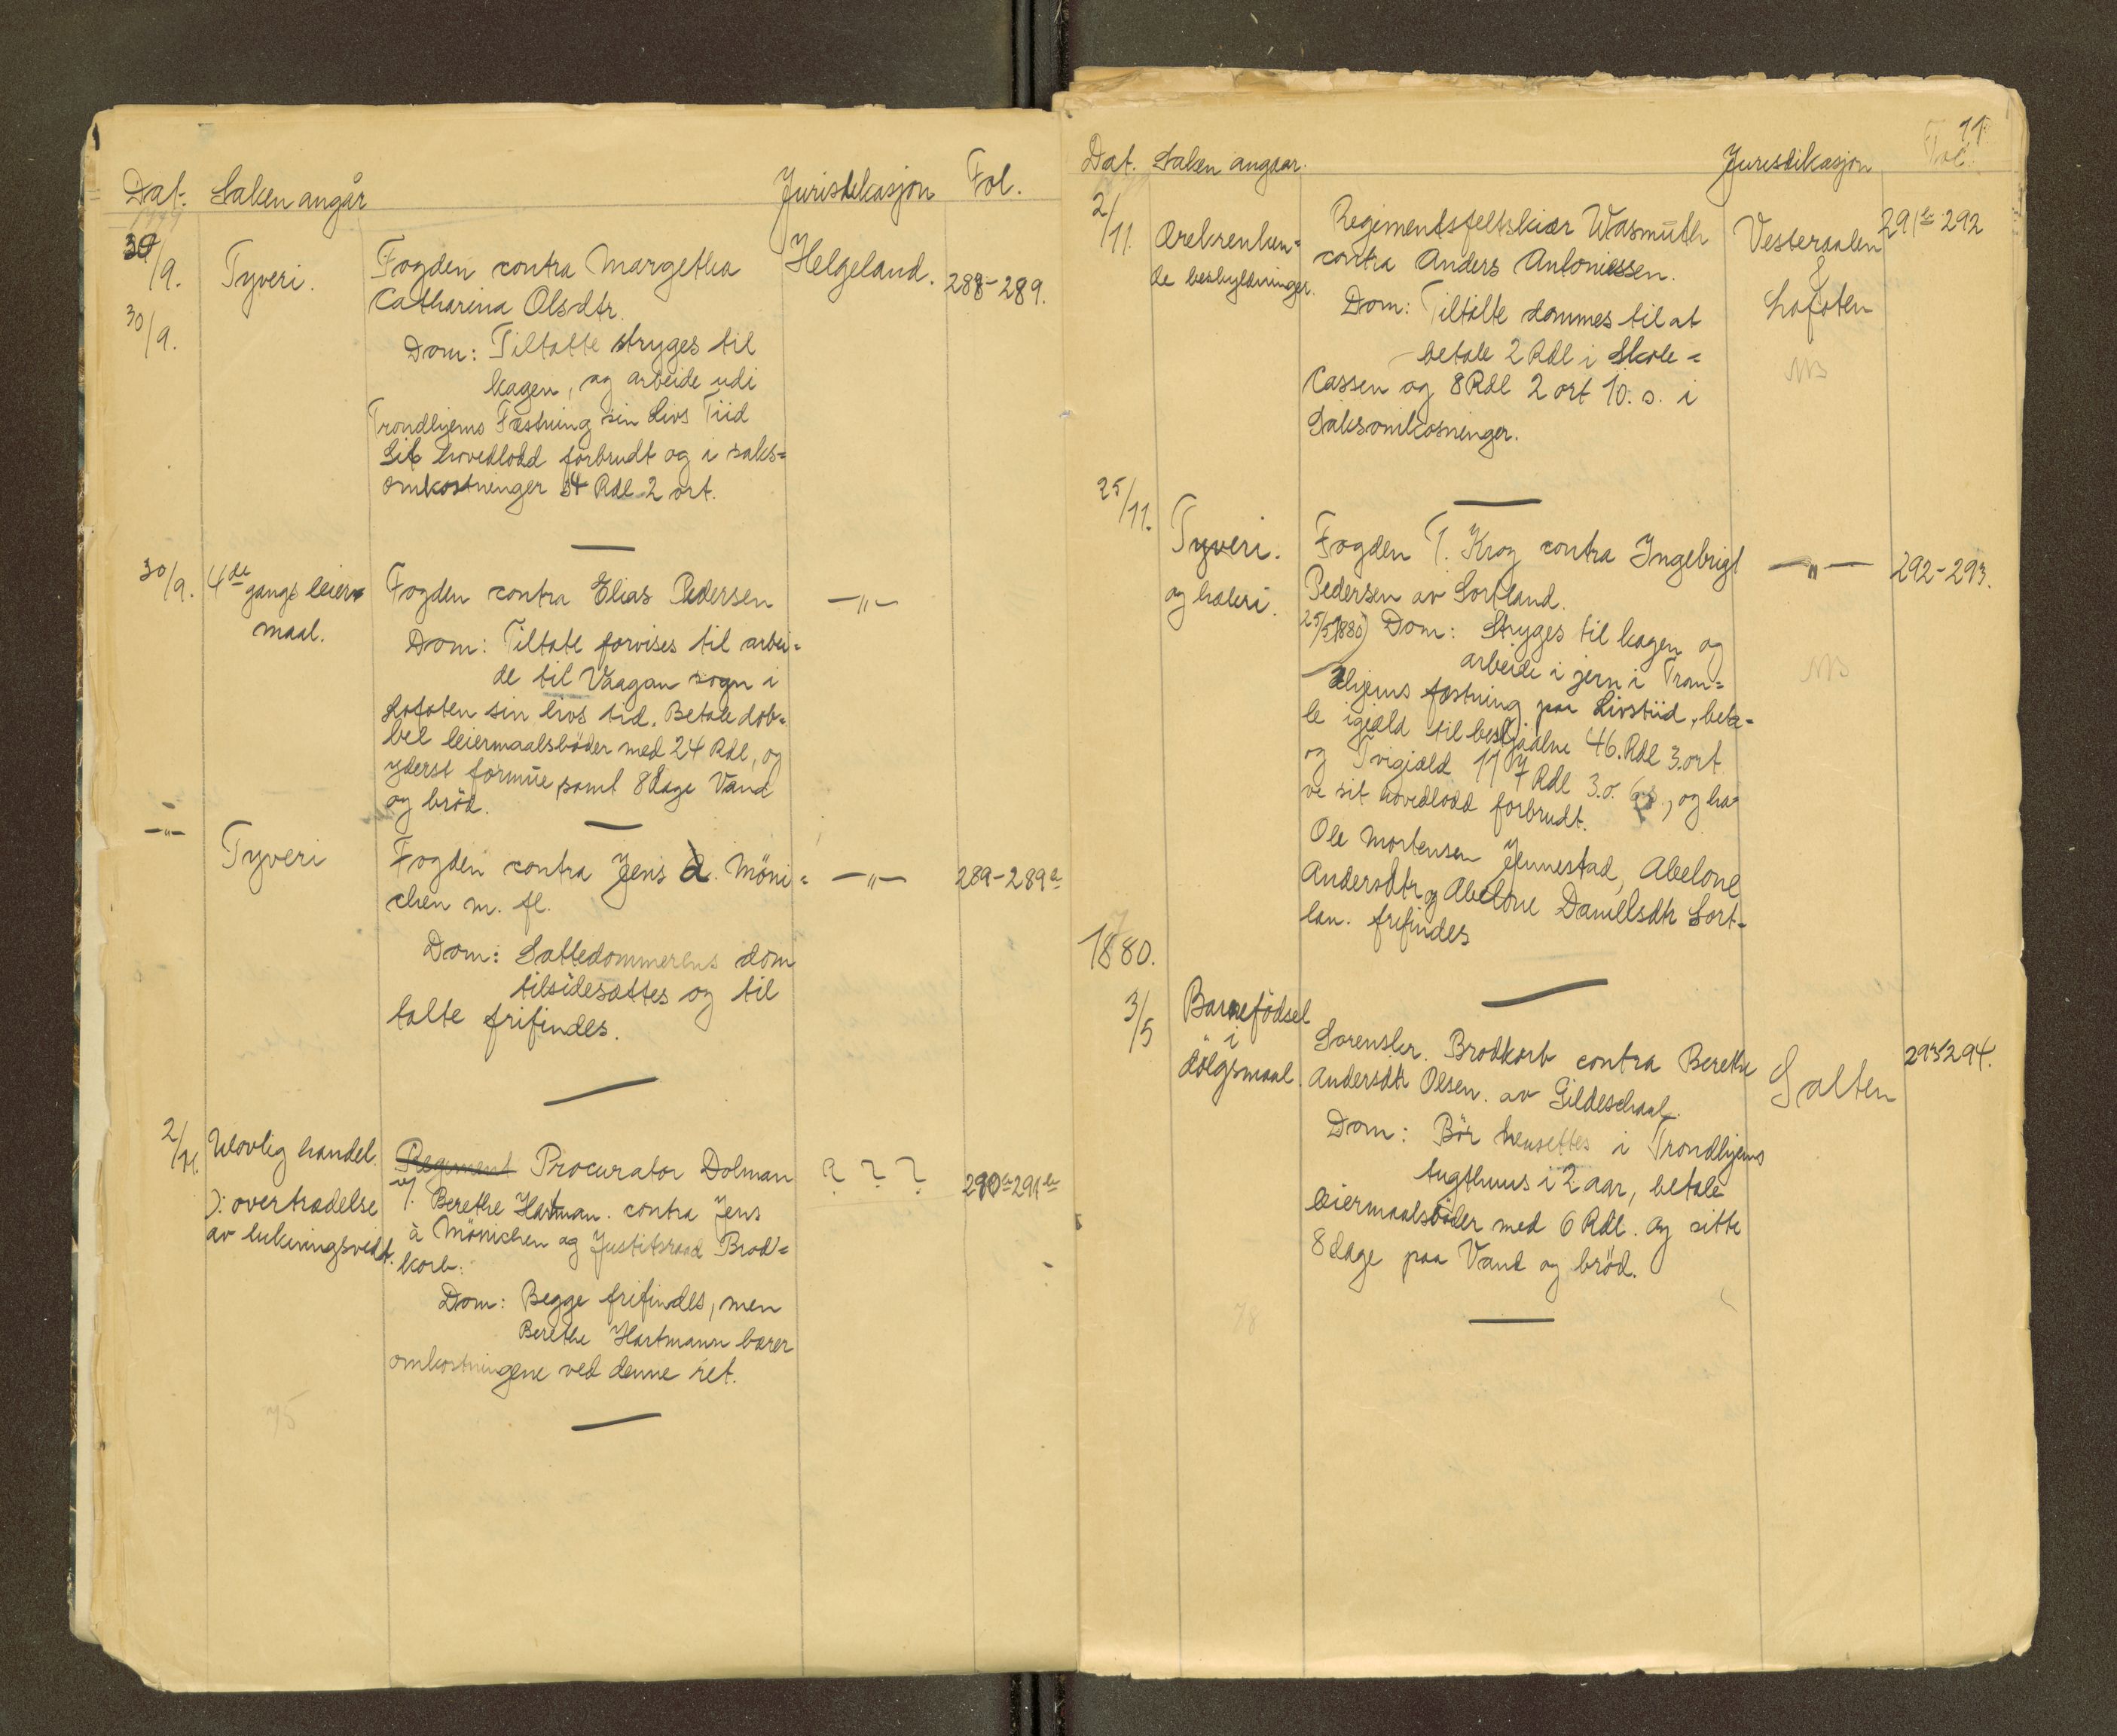 Dat. Saken angår Jurisdikasjon Fol.
30/9. Tyveri. Fogden contra Margetha Helgeland. 288-289.
Catharina Olsdtr.
30/9.
Dom: Tiltalte stryges til
kagen, og arbeide udi
Trondhjems Fæstning sin Livs Tiid
Sit hovedlodd forbrudt og i saks=
omkostninger 54 Rdl 2 ort.
30/9. 4de gangs leier= Fogden contra Elias Pedersen —"—
maal.
Dom: Tiltalt forvises til arbei=
de til Vaagan sogn i
Lofoten sin livs tid. Betale dob=
bel leiermaalsböder med 24 Rdl, og
yderst formue, samt 8 dage Vand
og bröd.
—"— Tyveri Fogden contra Jens à. Möni= —"— 289-289a
chen m. fl.
Dom: Sættedommerens dom
tilsidesættes og til
talte frifindes.
2/11. Ulovlig handel. Regiment Procurator Dolman ? ? ? 290a-291b
): overtrædelse f. Berethe Hartman. contra Jens
av lukningsvedt. à Mönichen og Justitsraad Brod=
korb.
Dom: Begge frifindes, men
Berethe Hartmann bærer
omkostningene ved denne ret.
75
11
Dat. Saken angaar. Jurisdikasjon Fol.
2/11. Ærekrenken= Regimentsfeltskiær Wasmuth Vesteraalen 291b-292
de beskyldninger. contra Anders Antoniessen. &
Dom: Tiltalte dømmes til at Lofoten
betale 2 Rdl i Skole=
Cassen og 8 Rdl 2 ort 10. s. i NB
Saksomkosninger.
25/11. Tyveri. Fogden T. Krog contra Ingebrigt —"— 292-293.
og hæleri. Pedersen av Sortland.
25/5 1880) Dom: Stryges til kagen og
arbeide i jern i Tron= NB
dhjems fæstning paa Livstiid, beta=
le igiæld til bestjaalne 46. Rdl 3. ort
og Tvigiæld 117 Rdl 3. o. 6 s., og ha=
ve sit hovedlodd forbrudt.
Ole Mortensen Jennestad, Abelone
Andersdtr og Abelone Daniellsdtr Sort=
lan. frifindes
1880.
3/5 Barnefödsel Sorenskr. Brodkorb contra Berethe Salten 293-294.
i
dölgsmaal. Andersdtr Olsen. av Gildeschaal.
Dom: Bör hensettes i Trondhjems
tugthuus i 2 aar, betale
leiermaalsböder med 6 Rdl. og sitte
8 dage paa Vand og bröd.
78